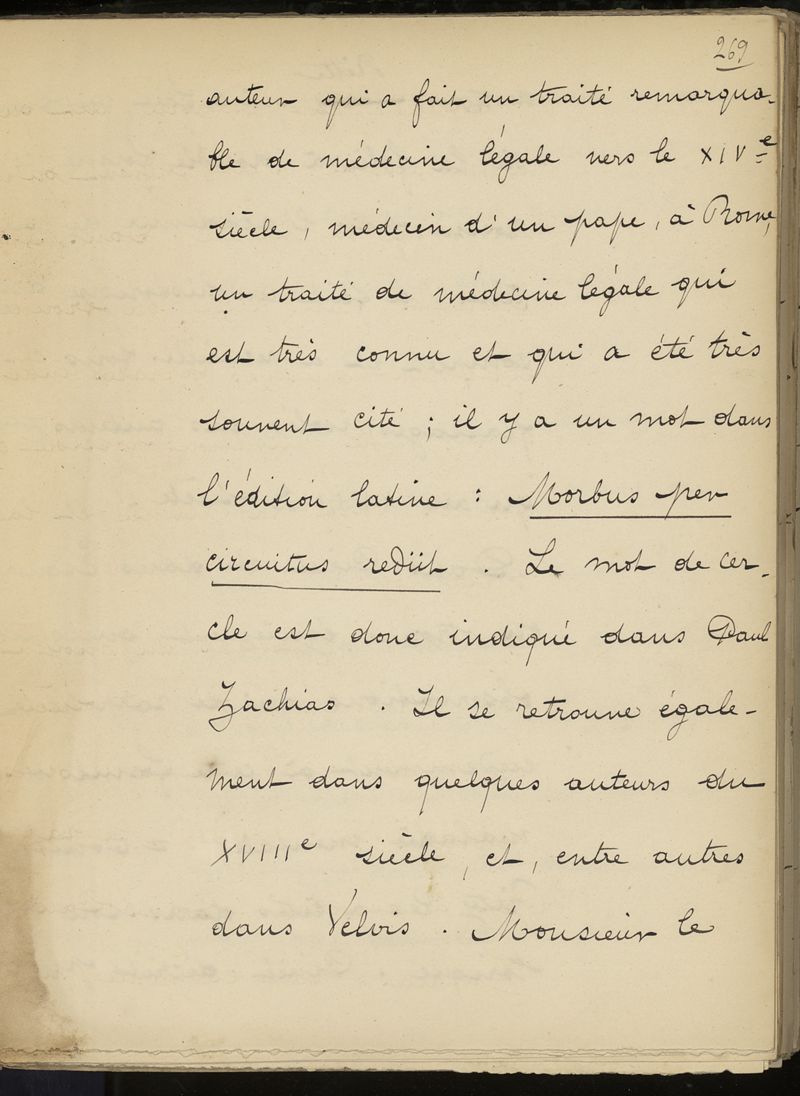 269
auteur qui a fait un traité remarqua-
ble de médecine légale vers le XIVe
siècle, médecin d'un pape, à Rome,
un traité de médecine légale qui
est très connu et qui a été très
souvent cité ; il y a un mot dans
l'édition latine : Morbus per
circuitus rediit. Le mot de cer-
cle est donc indiqué dans Paul
Zachias. Il se retrouve égale-
ment dans quelques auteurs du
XVIIIe siècle, et, entre autres
dans Velvis. Monsieur le